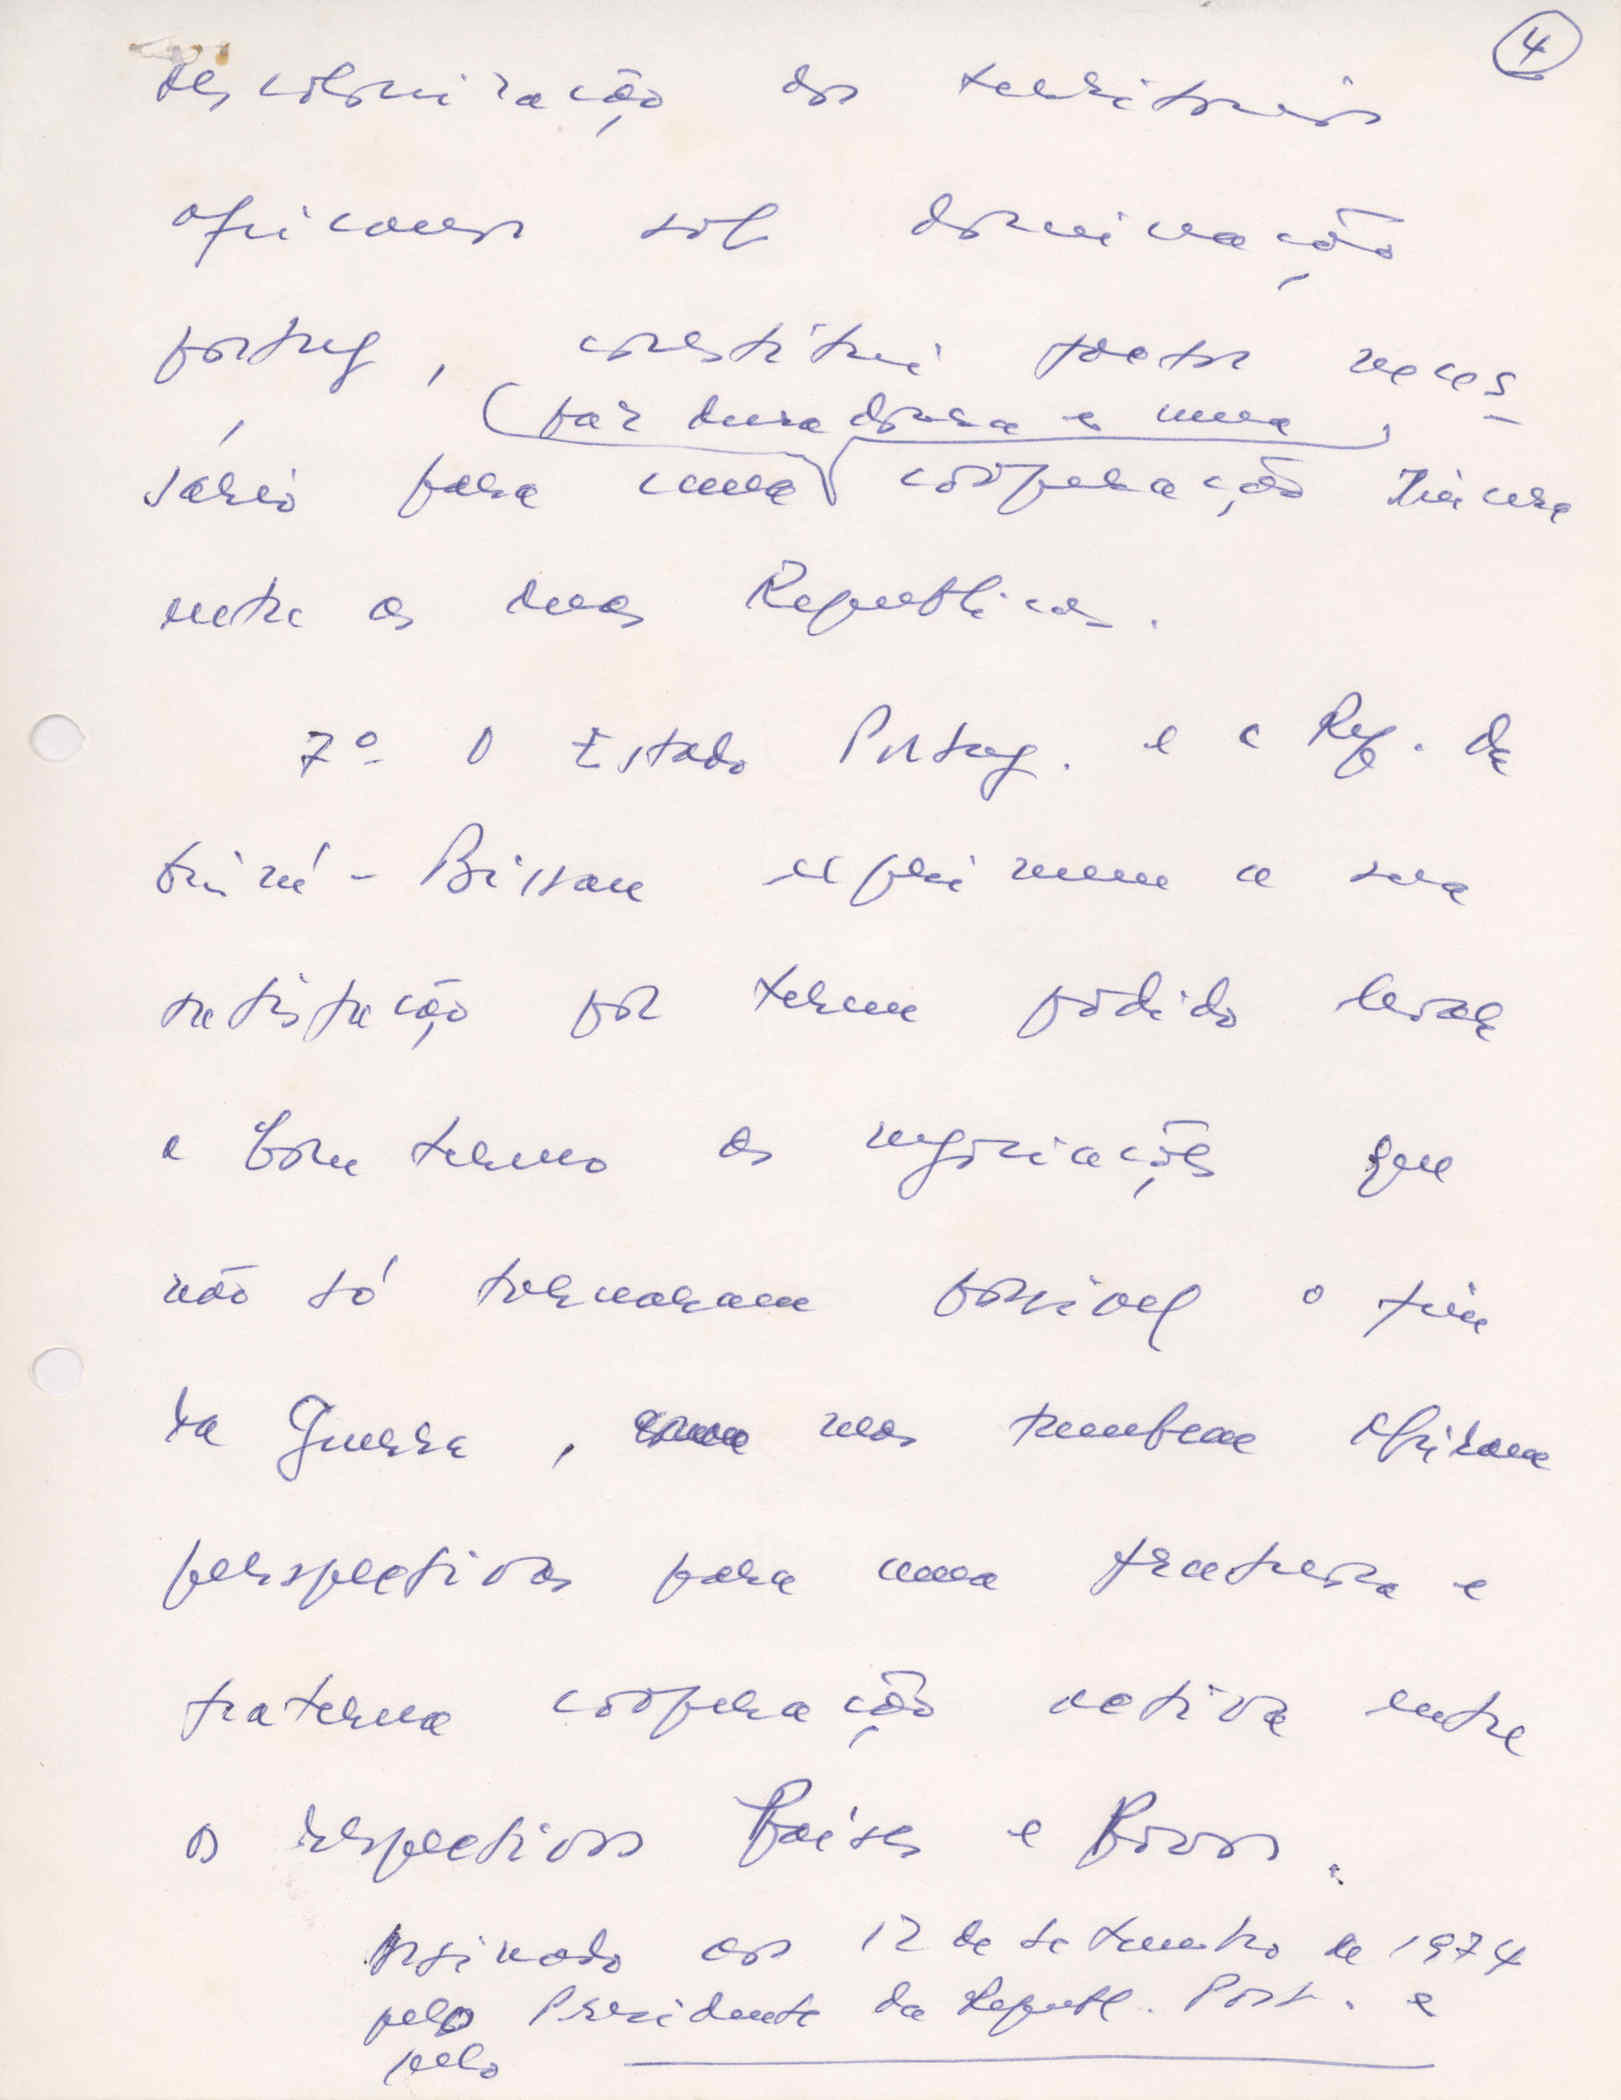 4
descolonização dos territórios
africanos sob dominação
portug, constitui factor neces-
(paz duradoura e uma)
sário para uma cooperação sincera
entre as duas Republicas.
7º O Estado Portug. e a Rep. da
Guiné-Bissau exprimem a sua
satisfação por terem podido levar
a bom termo as negociações que
não só tornaram possivel o fim
da Guerra, mas tambem
perspectivas para uma e
fraterna cooperação activa entre
os respectivos Paises e Povos.
Assinado aos 12 de setembro de 1974
pelo Presidente da Republ. Port. e
pelo